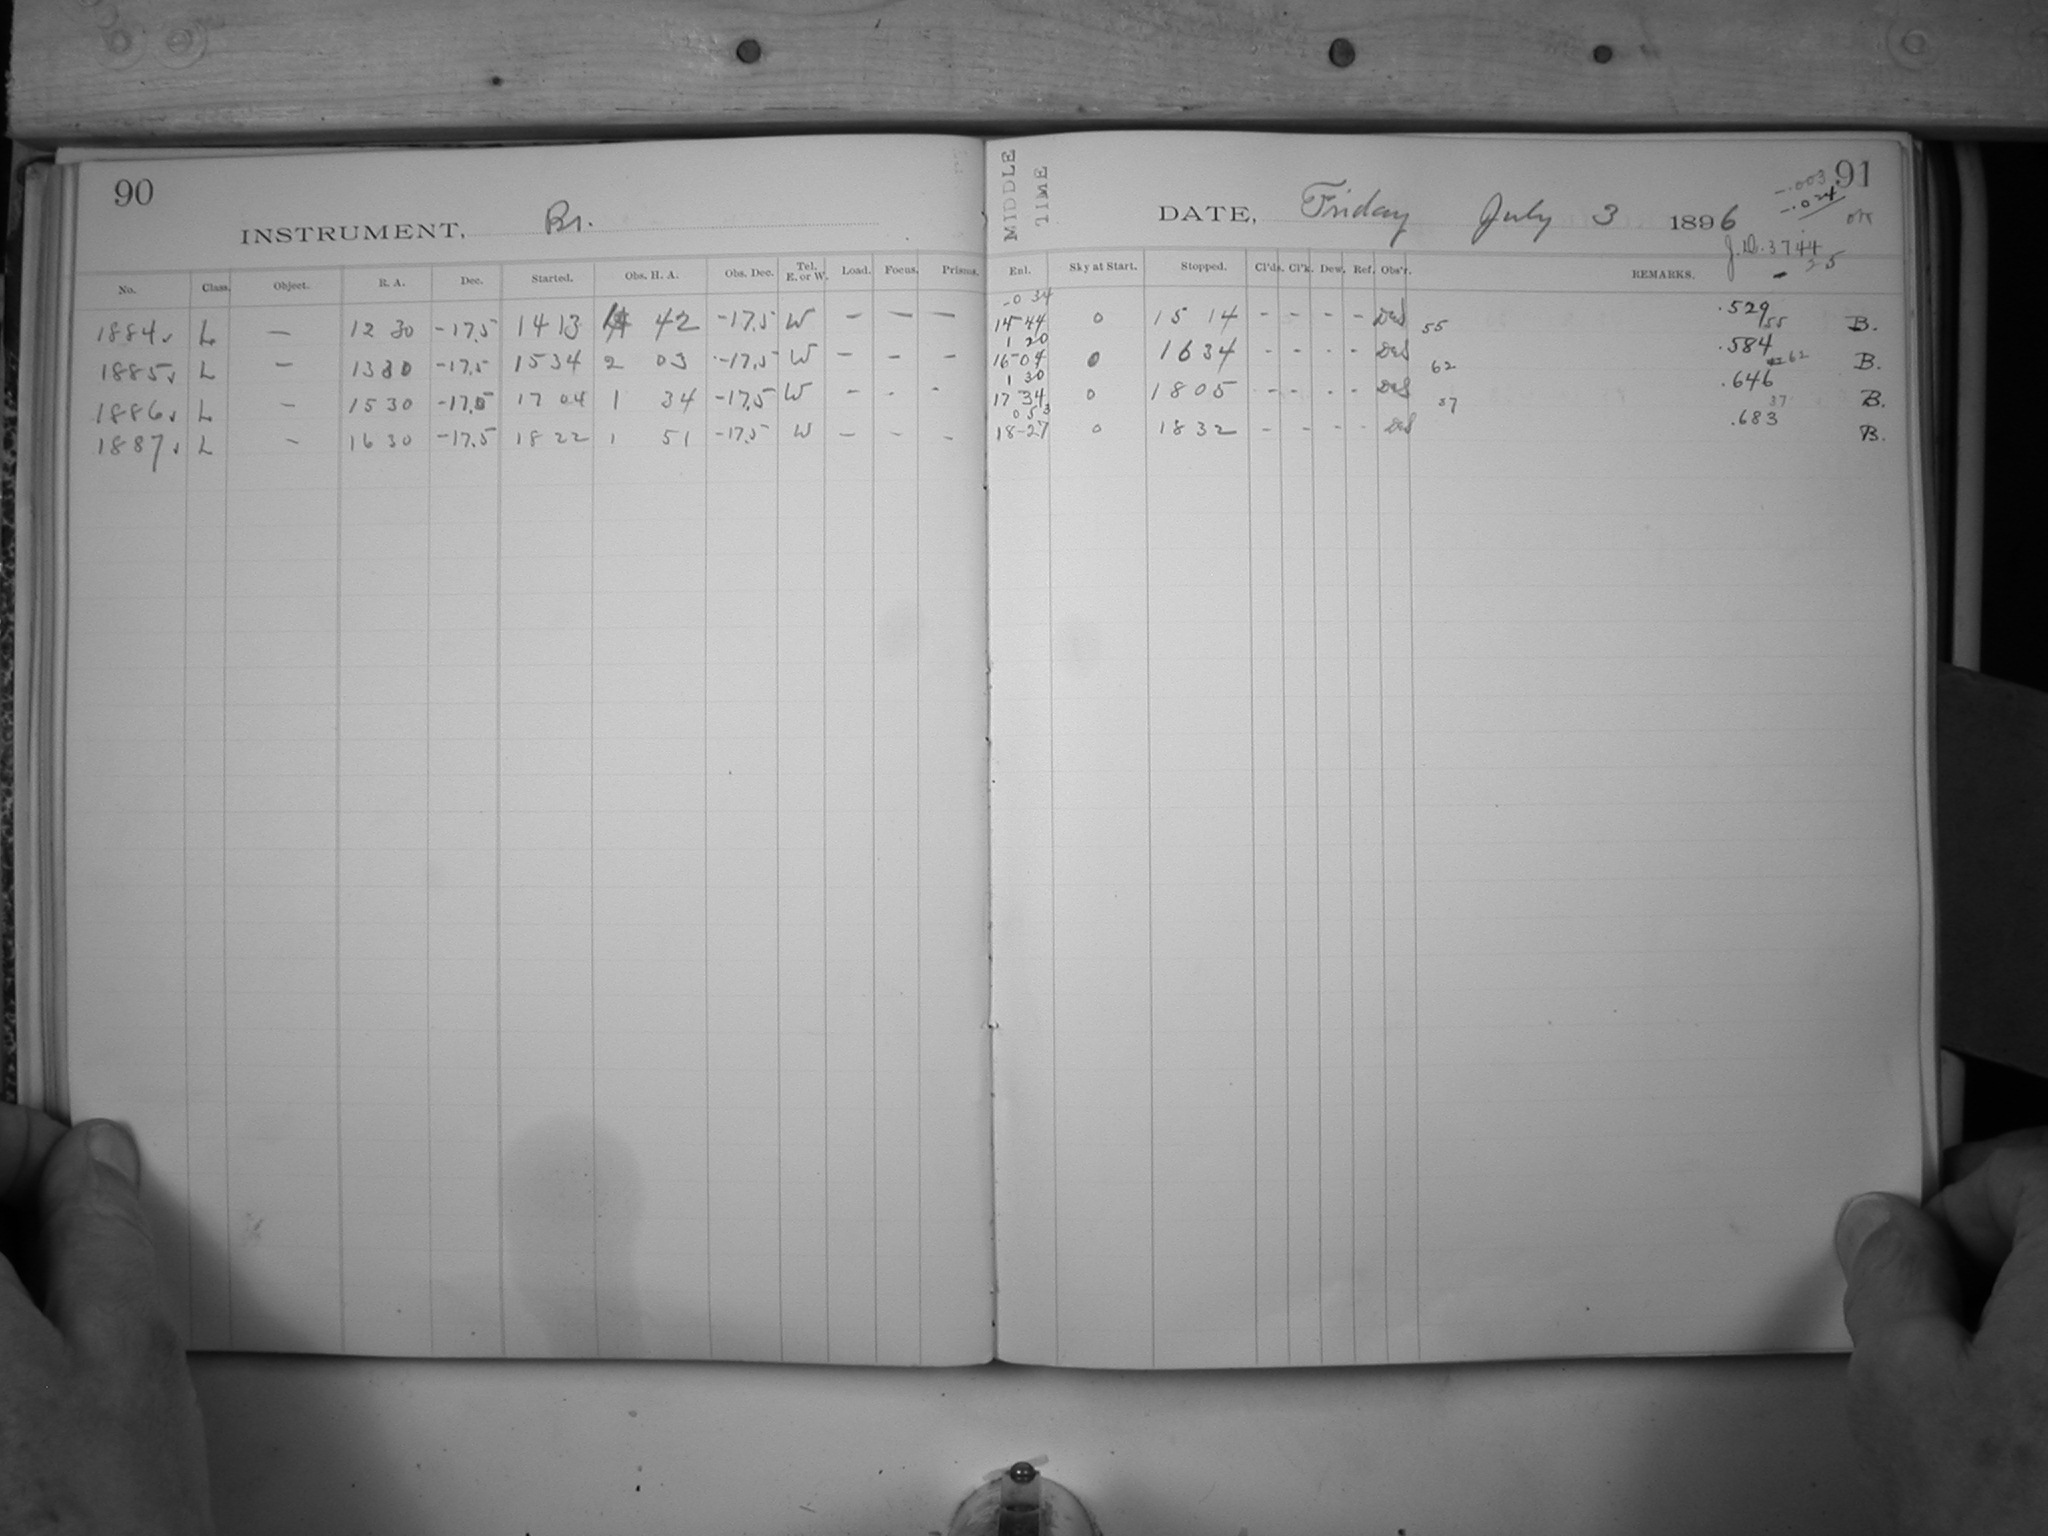 90
INSTRUMENT, Br.
No. Class. Object. R. A. Dec. Started. Obs. H. A. Obs. Dec. Tel. E. or W. Load. Focus. Prisms.
1884 L — 12 30 -17.5 14 13 42 -17.5 W — — —
1885 L — 13 30 -17.5 15 34 2 03 -17.5 W — — —
1886 L — 15 30 -17.5 17 04 1 34 -17.5 W — - -
1887 L — 16 30 -17.5 18 22 1 51 -17.5 W — - -
MIDDLE
TIME
DATE, Friday July 3 1896
91
-.003
-.024
OK
J.D. 3744
Enl. Sky at Start. Stopped. Cl'ds. Cl'k. Dew. Ref. Obs'r. REMARKS.
-0 34
14-44 0 15 14 - - - - DeS 55 .529 55 B.
1 20
16-04 0 16 34 - - - - DeS 62 .584 62 B.
1 30
17 34 0 18 05 - - - - DeS 37 .646 37 B.
0 53
18-27 0 18 32 - - - - DeS .683 B.